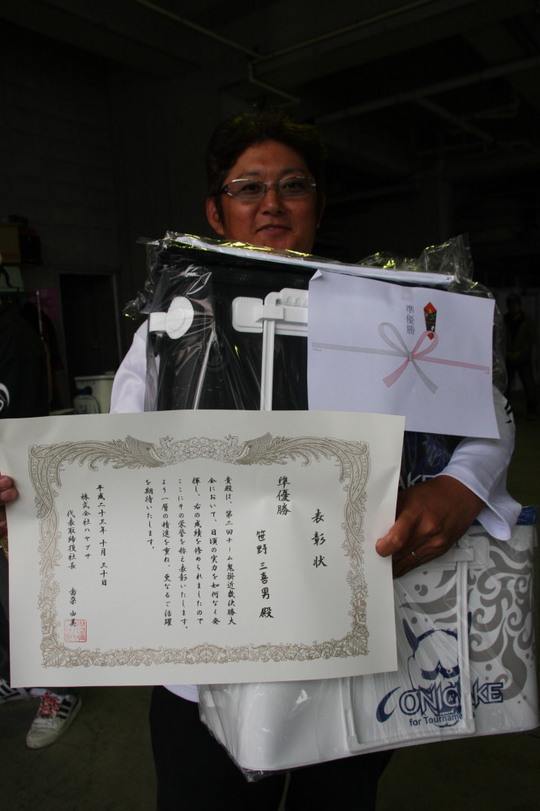 準優勝
表彰状
準優勝
笹野 三喜男 殿
貴殿は、第二回チーム鬼掛近畿決勝大
会において、日頃の実力を如何なく発
揮し、右の成績を修められましたので
ここにその栄誉を称え表彰いたします。
より一層の精進を重ね、更なるご活躍
を期待いたします。
平成二十三年 十月 三十日
株式会社ハヤブサ
代表取締役社長
ONIGAKE
for Tournament